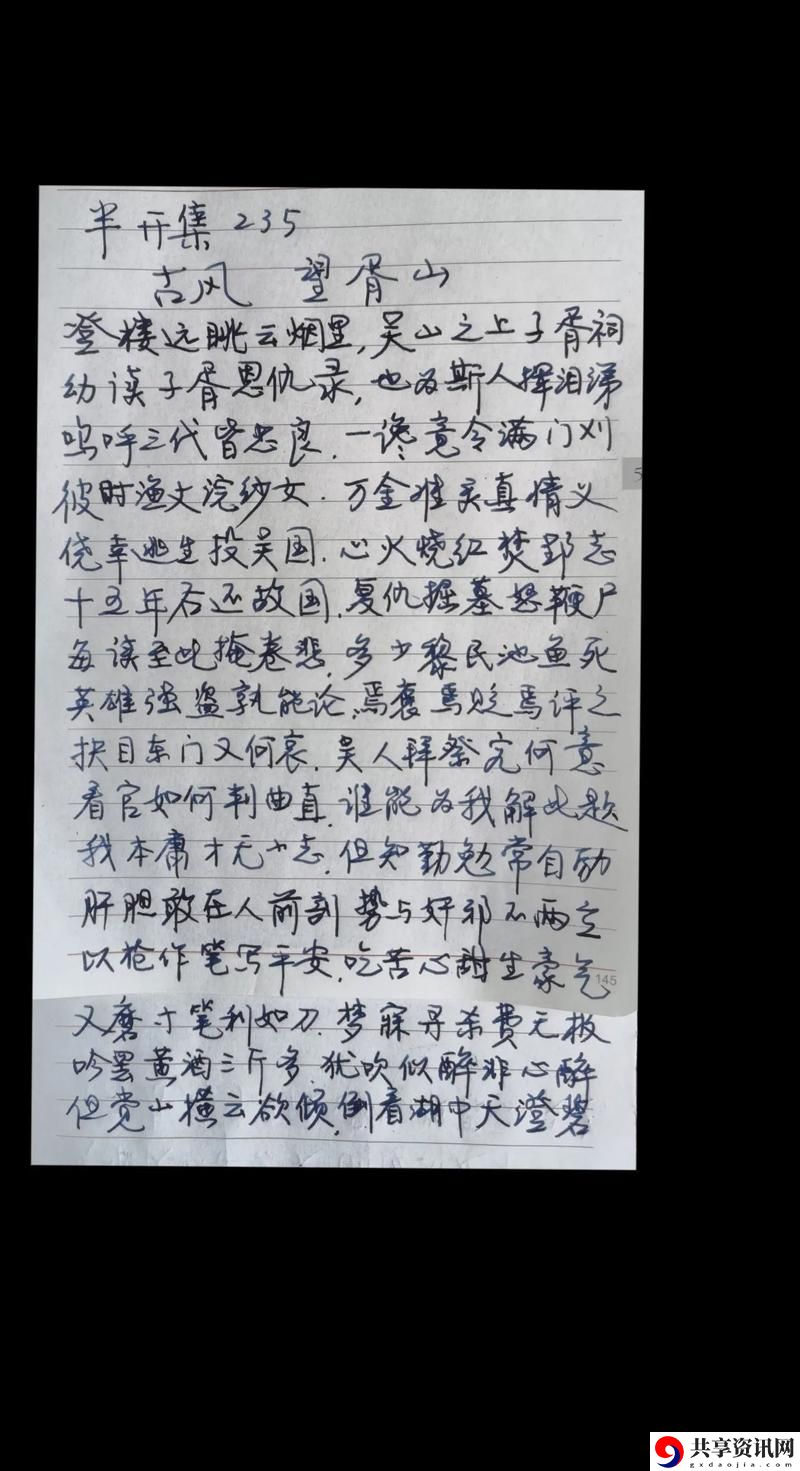 半开集 235
古风 望胥山
登楼远眺云烟里,吴山之上子胥祠
幼读子胥恩仇录,也为斯人挥泪涕
呜呼三代皆忠良,一谗竟令满门刈
彼时渔丈浣纱女.万金难买真情义
侥幸逃生投吴国.心火烧红焚郢志
十五年后还故国.复仇掘墓怒鞭尸
每读至此掩卷悲.多少黎民池鱼死
英雄强盗孰能论.焉褒焉贬焉评之
抉目东门又何哀.吴人拜祭究何意
看官如何判曲直.谁能为我解此题
我本庸才无大志.但知勤勉常自励
肝胆敢在人前剖 势与奸邪不两立
以枪作笔写平安.吃苦心甜生豪气
又磨寸笔利如刀.梦寐寻杀费无极
吟罢黄酒三斤多.犹似醉非心醉
但觉山横云欲倾.倒看湖中天澄碧
5
145
共享资讯网
gxdaojia.com